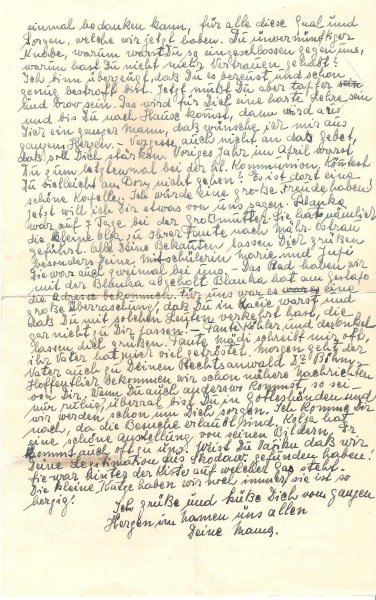 einmal bedanken kann, für alle diese Qual und
Sorgen, welche wir jetzt haben. Du unvernünftiger
Knabe, warum warst Du so eingeschlossen gegen uns,
warum hast Du nicht mehr Vertrauen gehabt?
Ich bin überzeugt, daß Du es bereust und schon
genug bestraft bist. Jetzt mußt Du aber tapfer
und brav sein. Das wird für Dich eine harte Lehre sein
und bis Du nach Hause komst, dann wird aus
Dir ein ganzer Mann, daß wünsche ich mir aus
ganzen Herzen. - Vergesse auch nicht an das Gebet,
daß soll Dich stärken. Voriges Jahr im April warst
Du zum letztenmal bei der hl. Kommunion, könntest
Du vielleicht an Dory nicht gehen? Es ist dort eine
schöne Kapelle. Ich würde eine große Freude haben!
Jetzt will ich Dir etwas von uns sagen. Blanka
war auf 7 Tage bei der Großmutter. Sie hat nämlich
die kleine Olga zu Ihrer Tante nach Mähr. Ostrau
geführt. Alle Deine Bekanten lassen Dich grüßen
besonders Deine Mitschülerin Marie und
Die war auch zweimal bei uns. - Das Rad haben wir
mit der Blanka abgeholt Blanka hat am Gestapo
die Adresse bekommen. Für uns war es eine
große Überraschung, daß Du in warst und
daß Du mit solchen Leuten verkehrst hast, die
gar nicht zu Dir passen! - Tante Köhler und der Onkel
lassen dich grüßen. Tante Mädi schreibt mir oft,
ihr Vater hat mich viel getröstet. Morgen geht der
Vater auch zu Deinen Rechtsanwald Dr Böhm,
Hoffentlich bekommen wir schon nähere Nachrichten
von Dir. Wenn Du auch anderswo kommst, so sei
nur ruhig, überal bist Du in Gotteshänden und
wir werden schon um Dich sorgen. Ich komme Dir
nach, da die Besuche erlaubt sind. Kolja hat
eine schöne Austellung von seinen Bildern. Er
kommt auch oft zu uns. Weist Du daß wir
Deine Legitimation aus gefunden haben!
Sie war hinter der Kiste auf welcher Gas steht.
Die kleine Katze haben wir noch immer, sie ist so
herzig!
Ich grüße und küße Dich vom ganzen
Herzen im Namen uns allen
Deine Mama.